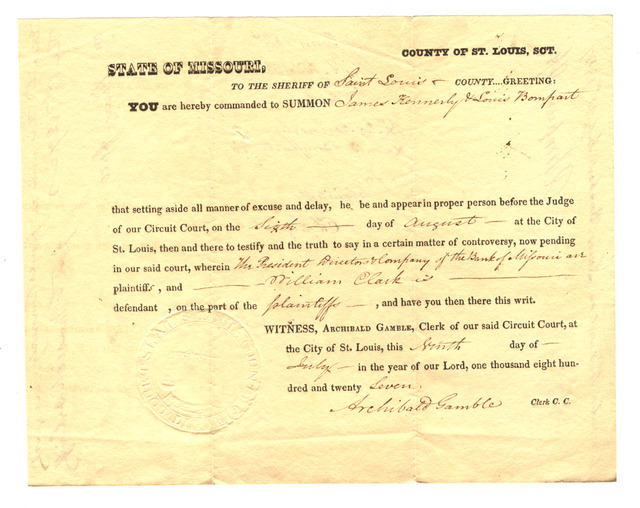 COUNTY OF ST. LOUIS, SCT.
STATE OF MISSOURI,
TO THE SHERIFF OF Saint Louis COUNTY....GREETING:
YOU are hereby commanded to SUMMON James Kennerly & Louis Bompart
that setting aside all manner of excuse and delay, he be and appear in proper person before the Judge
of our Circuit Court, on the Sixth day of August at the City of
St. Louis, then and there to testify and the truth to say in a certain matter of controversy, now pending
in our said court, wherein The President Directors & Company of the Bank of Missouri are
plaintiffs, and William Clark is
defendant , on the part of the plaintiffs , and have you then there this writ.
WITNESS, ARCHIBALD GAMBLE, Clerk of our said Circuit Court, at
the City of St. Louis, this Ninth day of
July in the year of our Lord, one thousand eight hun-
dred and twenty Seven.
Archibald Gamble Clerk C. C.